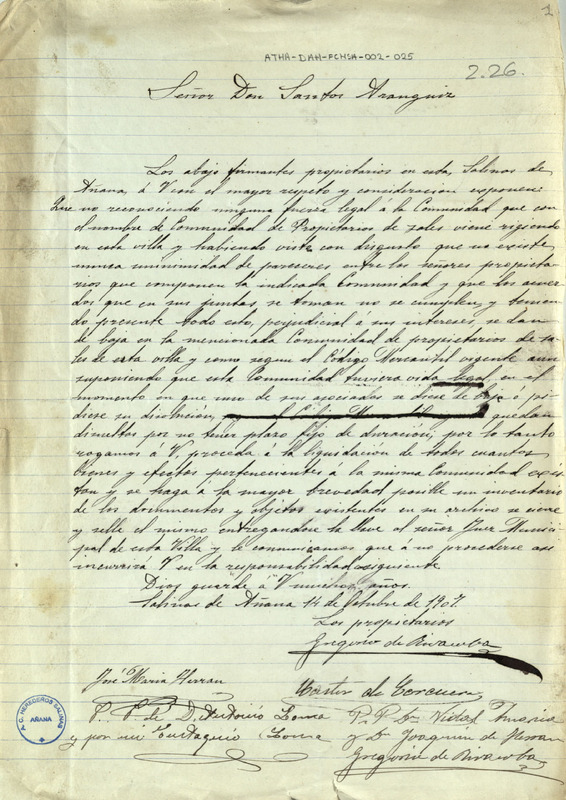 1
ATHA-DAH-FCHSA-002-025
2.26.
Señor Don Santos Aranguiz
Los abajo firmantes propietarios en esta, Salinas de
Añana, á V con el mayor respeto y consideracion exponen:
Que no reconociendo ninguna fuerza legal á la Comunidad que con
el nombre de Comunidad de Propietarios de sales viene rigiendo
en esta villa y habiendo visto con disgusto que no existe
nunca unanimidad de pareceres entre los señores propieta-
rios que componen la indicada Comunidad y que los acuer-
dos que en sus juntas, se toman no se cumplen, y tenien-
do presente todo esto, perjudicial á sus intereses, se dan
de baja en la mencionada Comunidad de propietarios de sa-
les de esta villa y como segun el Codigo Mercantil vigente aun
suponiendo que esta Comunidad tuviera vida legal en el
momento en que uno de sus asociados se diese de baja ó pi-
diese su disolucion, quedan
disueltos por no tener plazo fijo de duracion, por lo tanto
rogamos á V. proceda á la liquidacion de todos cuantos
bienes y efectos pertenecientes á la misma Comunidad exis-
tan y se haga á la mayor brevedad posible un inventario
de los documentos y objetos existentes en su archivo se cierre
y selle el mismo entregandose la llave al señor Juez Munici-
pal de esta Villa y le comunicamos que a no procederse asi
incurrira V en la responsabilidad consiguiente
Dios guarde á V muchos años.
Salinas de Añana 14 de Octubre de 1907.
Los propietarios
Gregorio de Rivacoba
José Maria Herran
Castor de Corcuera
P. P. de D. Antonio Loma
y por mi Eustaquio Loma
P. P. Dn. Vidal
y Dn Joaquin de Herran
Gregorio de Rivacoba
A.C. HEREDEROS SALINAS
AÑANA